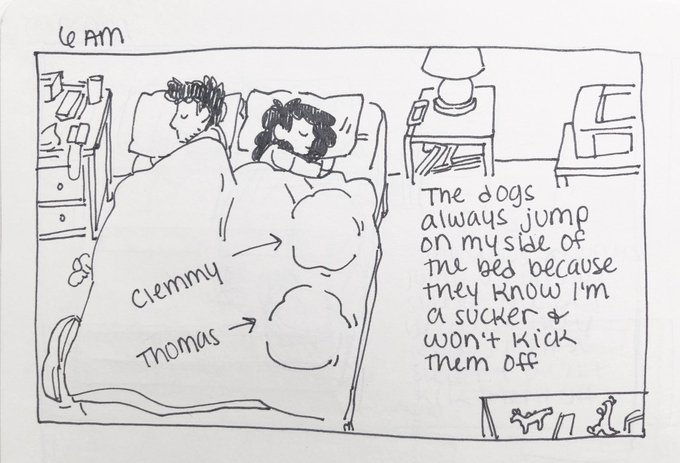 6 AM
Clemmy
Thomas
The dogs
always jump
on my side of
the bed because
they know I'm
a sucker &
won't kick
them off